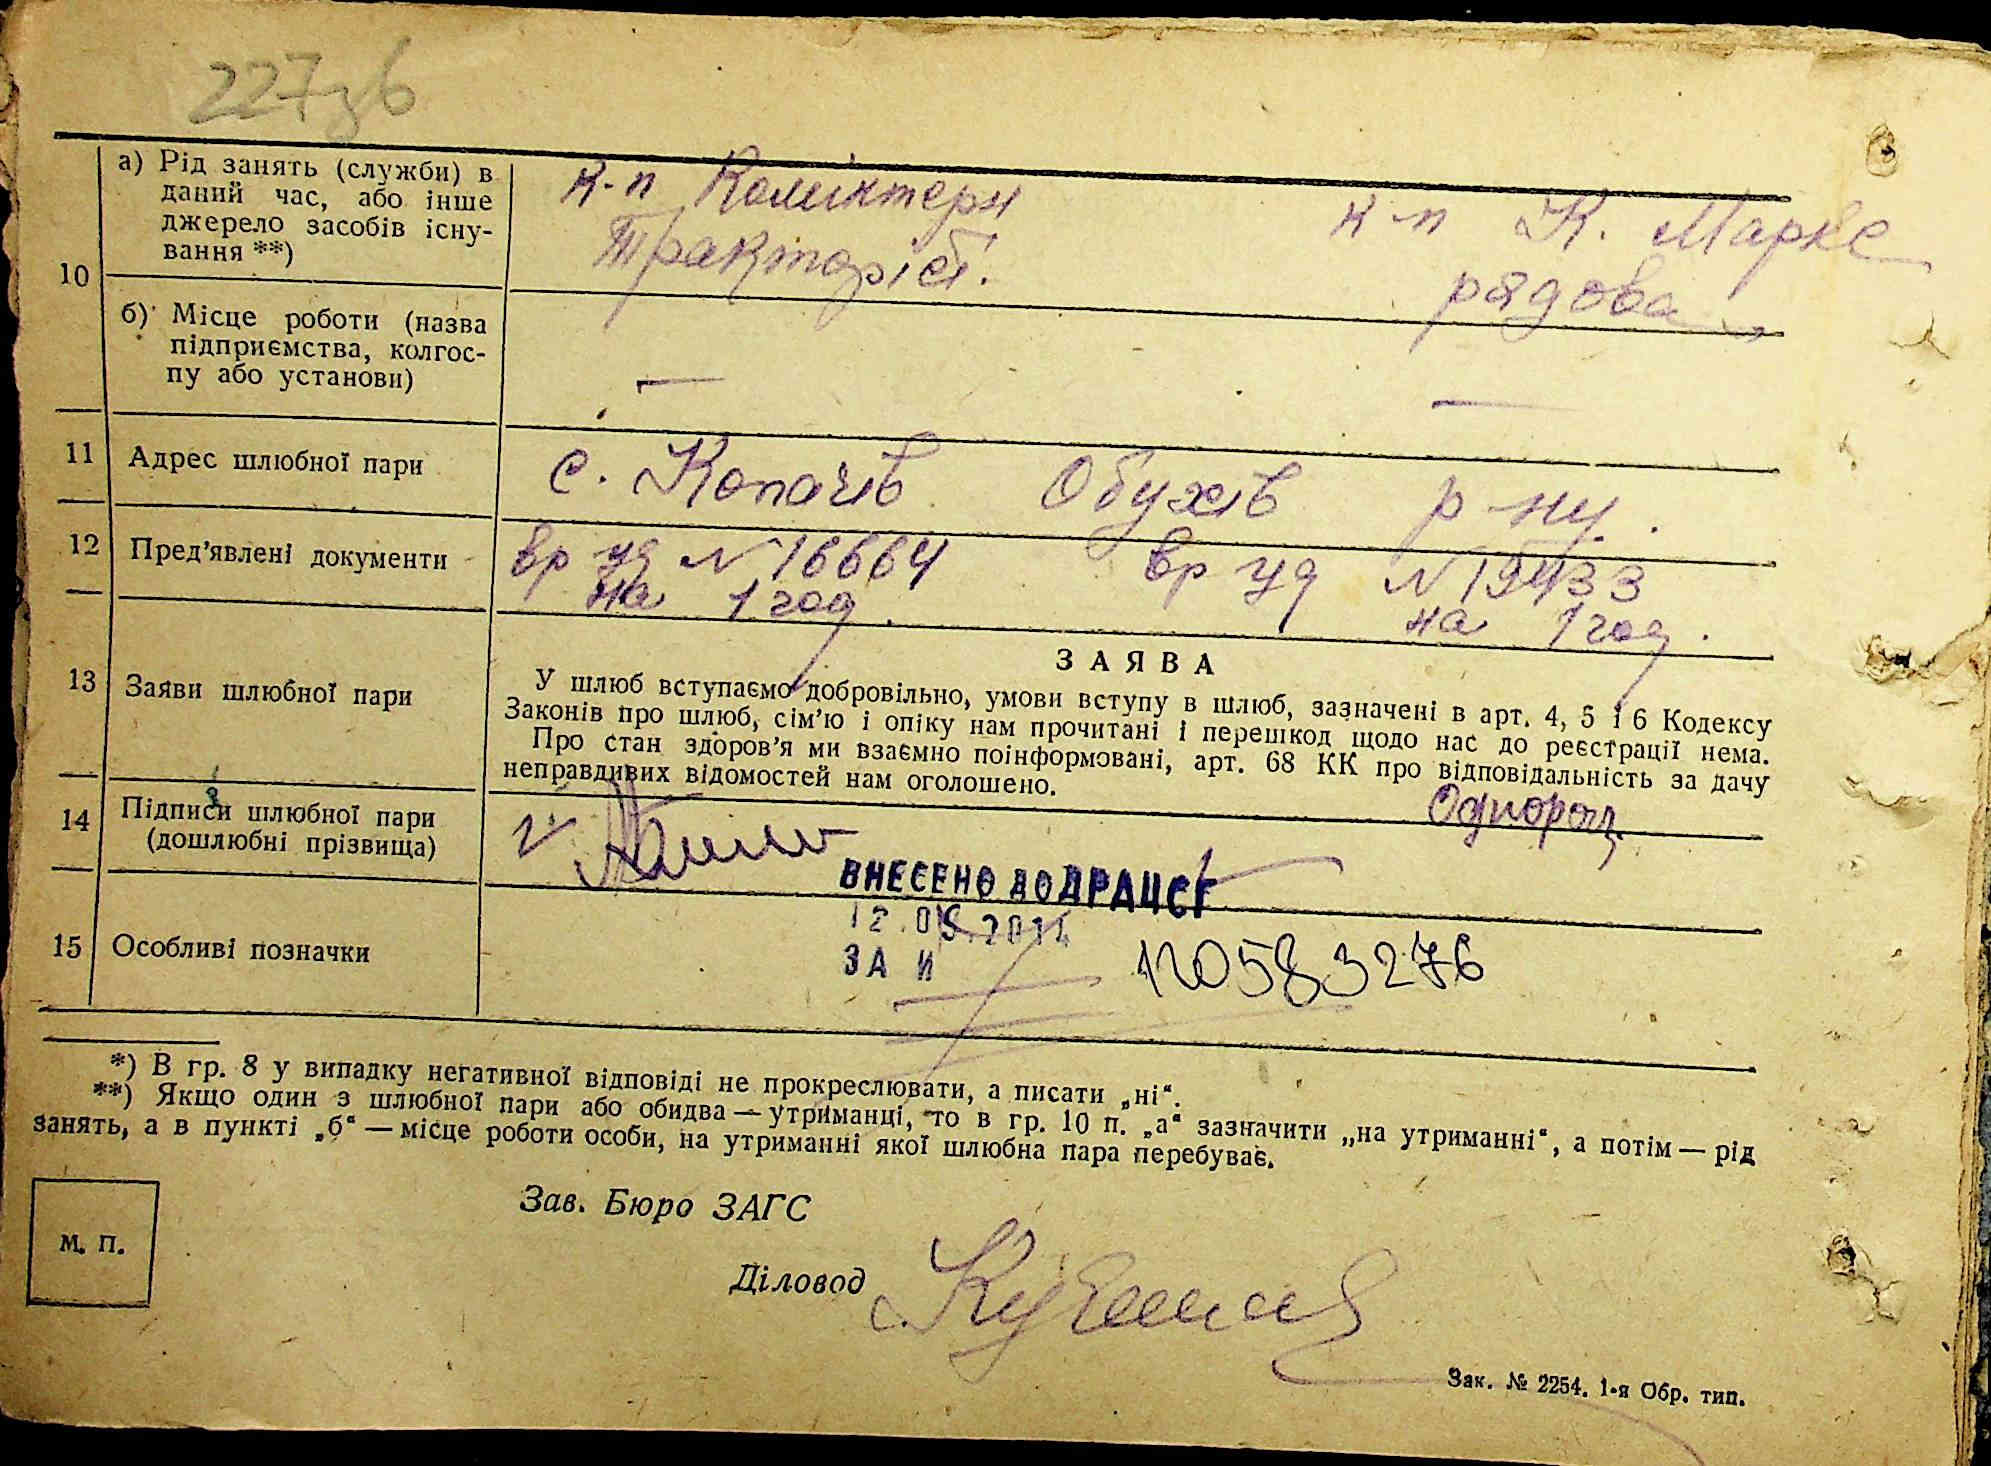 227зв
10
а) Рід занять (служби) в
даний час, або інше
джерело засобів існу-
вання **)
к-п Комінтерн
Тракторіст.
к-п К. Маркс
рядова
б) Місце роботи (назва
підприємства, колгос-
пу або установи)
—
—
11 Адрес шлюбної пари
с. Копачів Обухів р-ну.
12 Пред’явлені документи
вр уд N 16664
на 1 год.
вр уд N 19433
на 1 год.
13 Заяви шлюбної пари
ЗАЯВА
У шлюб вступаємо добровільно, умови вступу в шлюб, зазначені в арт. 4, 5 і 6 Кодексу
Законів про шлюб, сім’ю і опіку нам прочитані і перешкод щодо нас до реєстрації нема.
Про стан здоров’я ми взаємно поінформовані, арт. 68 КК про відповідальність за дачу
неправдивих відомостей нам оголошено.
14 Підписи шлюбної пари
(дошлюбні прізвища)
ВНЕСЕНО ДО ДРАЦСГ
15 Особливі позначки
ЗА И 120583276
*) В гр. 8 у випадку негативної відповіді не прокреслювати, а писати „ні“.
**) Якщо один з шлюбної пари або обидва — утриманці, то в гр. 10 п. „а“ зазначити „на утриманні“, а потім — рід
занять, а в пункті „б“ — місце роботи особи, на утриманні якої шлюбна пара перебуває.
М. П.
Зав. Бюро ЗАГС
Діловод
Зак. № 2254. 1-я Обр. тип.